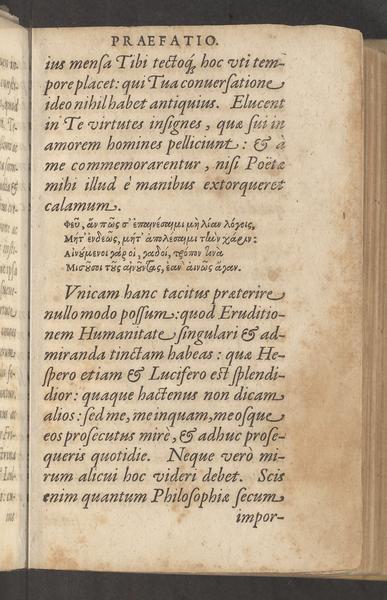 PRAEFATIO.
ius mensa Tibi tectoq́; hoc vti tem-
pore placet: qui Tua conuersatione
ideo nihil habet antiquius. Elucent
in Te virtutes insignes, quæ sui in
amorem homines pelliciunt: & à
me commemorarentur, nisi Poëtæ
mihi illud è manibus extorqueret
calamum.
Φεῦ, ἂν πῶς σ' ἐπαινέσαιμι μὴ λίαν λόγοις,
Μήτ' ἐνδεῶς, μήτ' ἀπολέσαιμι τὴν χάριν:
Αἰνούμενοι γὰρ οἱ ἀγαθοί, τρόπον τινὰ
Μισοῦσι τοὺς αἰνοῦντας, ἐὰν αἰνῶσ' ἄγαν.
Vnicam hanc tacitus præterire
nullo modo possum: quod Eruditio-
nem Humanitate singulari & ad-
miranda tinctam habeas: quæ He-
spero etiam & Lucifero est splendi-
dior: quaque hactenus non dicam
alios: sed me, me inquam, meosque
eos prosecutus mirè, & adhuc prose-
queris quotidie. Neque verò mi-
rum alicui hoc videri debet. Scis
enim quantum Philosophiæ secum
impor-